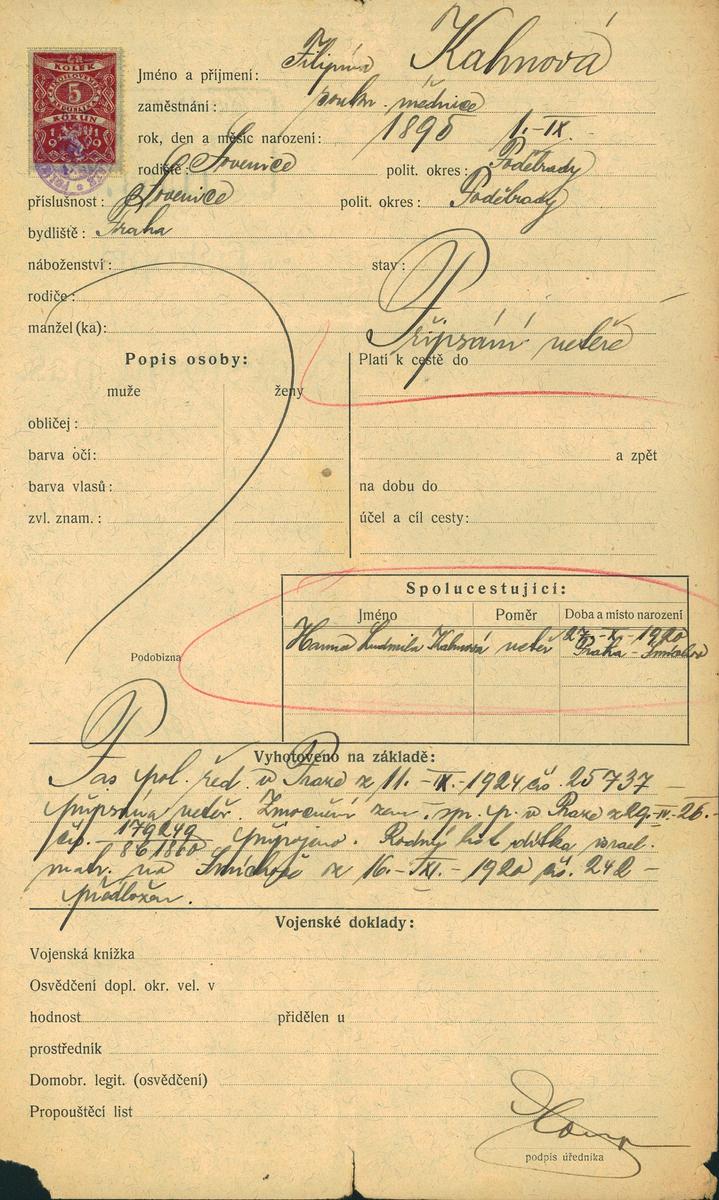 KOLEK
5
KORUN
1919
Jméno a příjmení: Filipína Kahnová
zaměstnání: soukr.
rok, den a měsíc narození: 1895 1.-IX.
rodiště: Lovenice polit. okres: Poděbrady
příslušnost: Slovenice polit. okres: Poděbrady
bydliště: Praha
náboženství: stav:
rodiče:
manžel (ka): Připsání neteře
Popis osoby: Platí k cestě do
muže ženy
obličej:
barva očí: a zpět
barva vlasů: na dobu do
zvl. znam.: účel a cíl cesty:
Spolucestující:
Jméno Poměr Doba a místo narození
Hanna Ludmila Kahnová neteř 27.-X.-1920
Praha - Smíchov
Podobizna
Vyhotoveno na základě:
Pas pol. řed. v Praze z 11.-IX.-1924 čís. 25737 -
připsána neteř. Zmocnění zem. sp. p. v Praze z 29-IV-26.-
čís. 179249
861860 připojeno. Rodný list dítka israel.
matr. na Smíchově ze 16.-XI.-1920 čís. 242 -
předložen.
Vojenské doklady:
Vojenská knížka
Osvědčení dopl. okr. vel. v
hodnost přidělen u
prostředník
Domobr. legit. (osvědčení)
Propouštěcí list
podpis úředníka